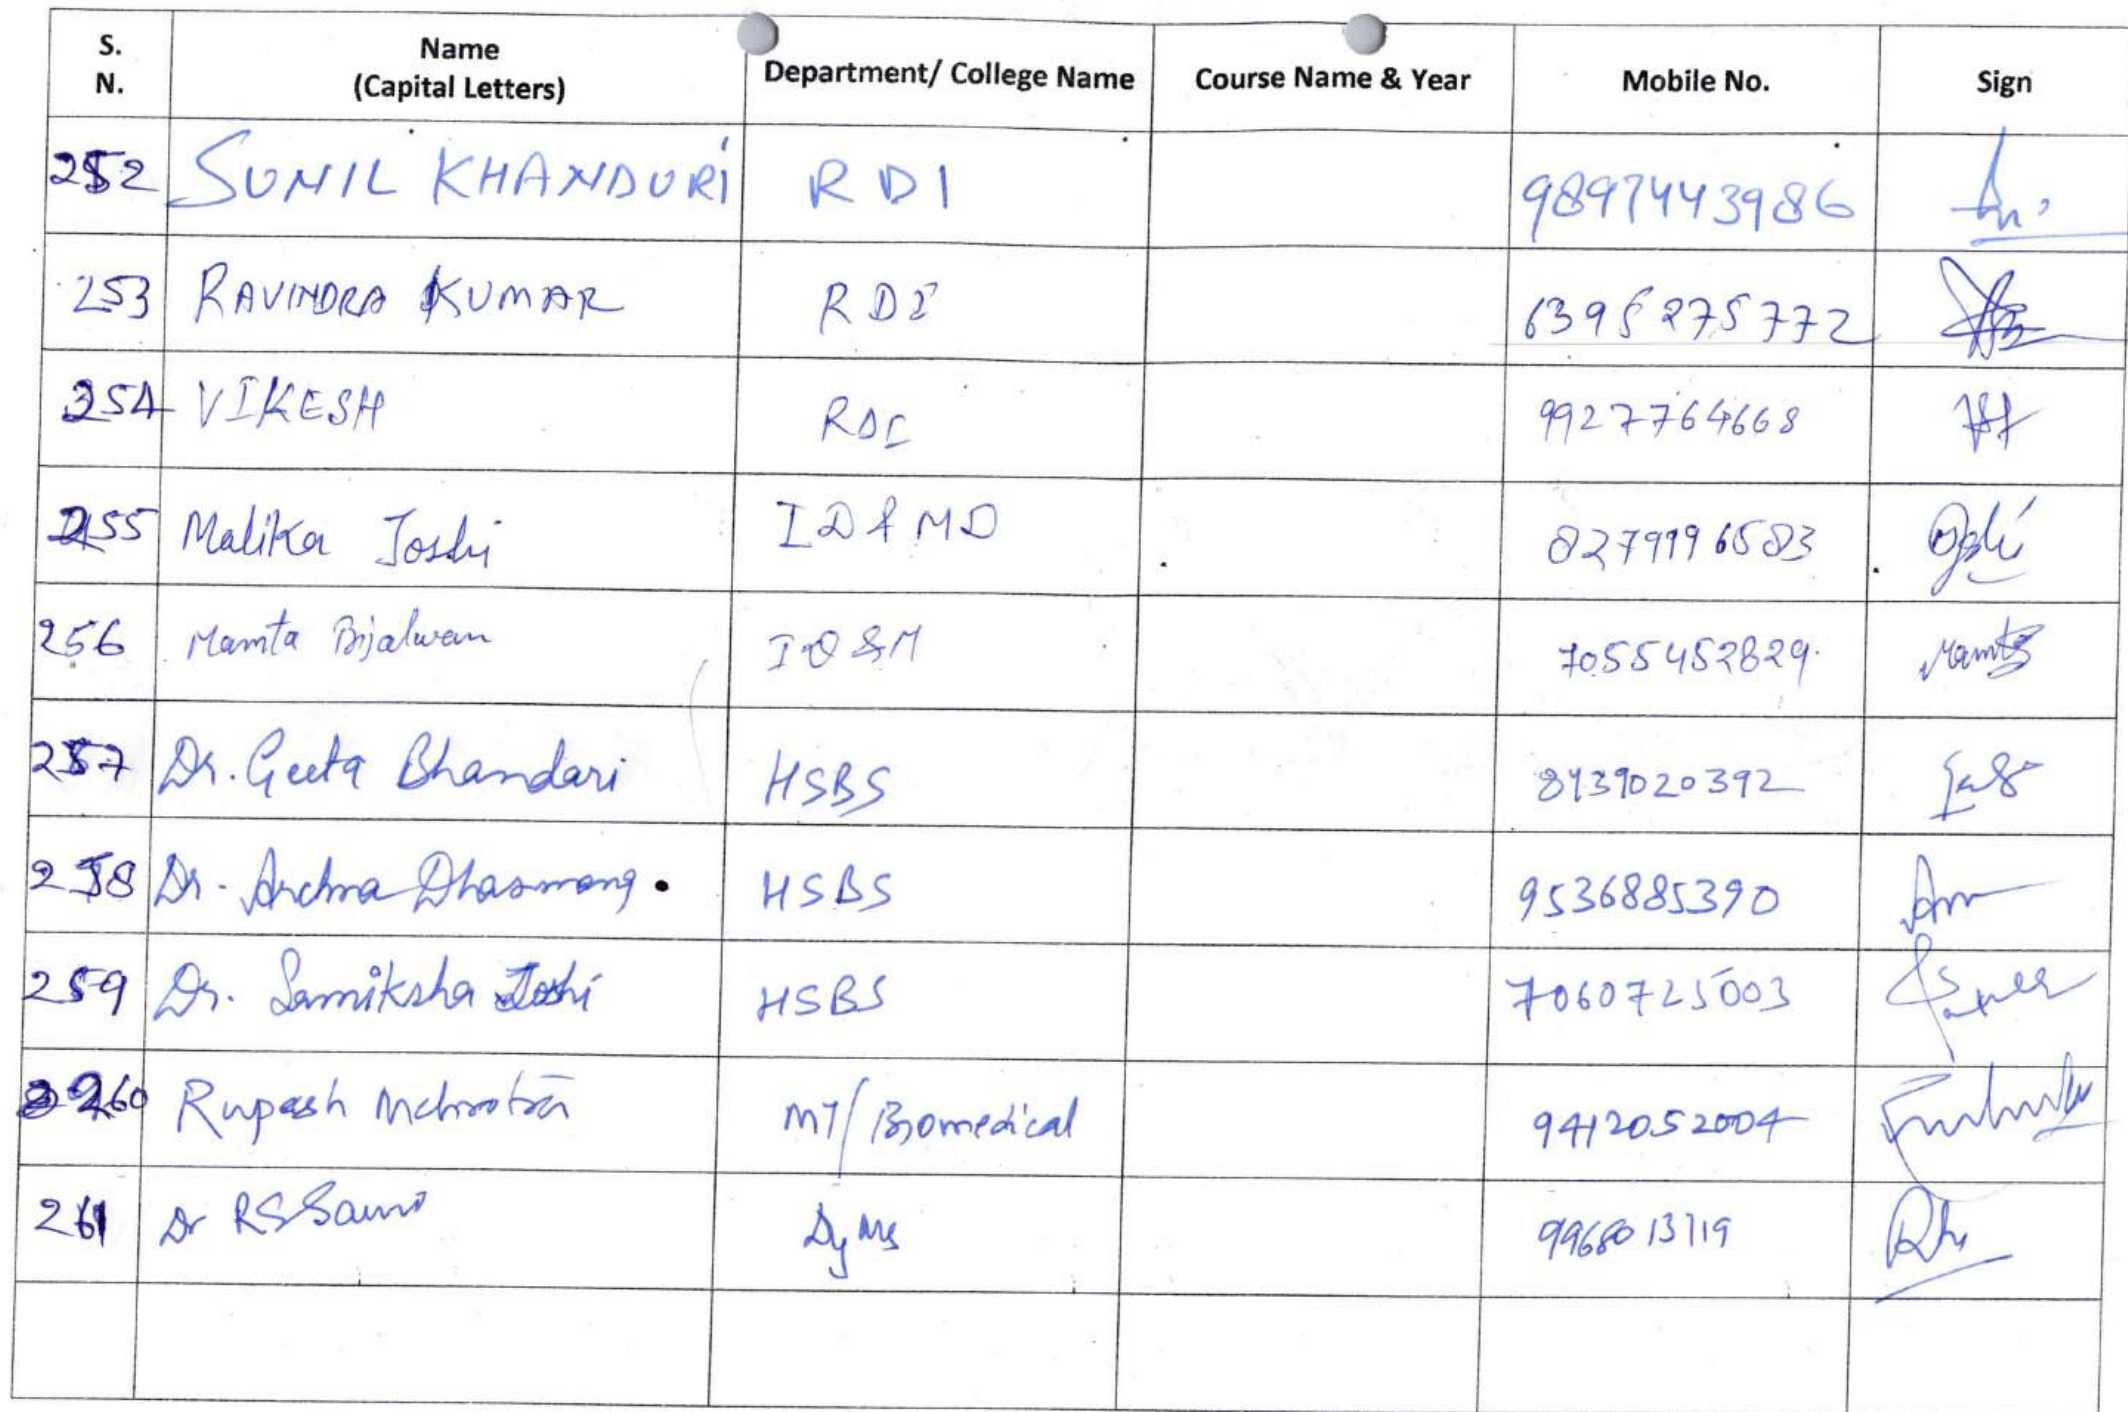 S. N. Name (Capital Letters) Department/ College Name Course Name & Year Mobile No. Sign
252 SUNIL KHANDURI RDI 9897443986
253 RAVINDRA KUMAR RDI 6395275772
254 VIKESH RDI 9927764668
255 Malika Joshi ID&MD 8279996583
256 Mamta Bijalwan IO&M 7055452829. Mamta
257 Dr. Geeta Bhandari HSBS 8439020392
258 Dr. Archna Dhasmana. HSBS 9536885390
259 Dr. Samiksha Joshi HSBS 7060725003
260 Rupesh Mehrotra MT/Biomedical 9412052004
261 Dr RS Saini Dy MS 9968013719